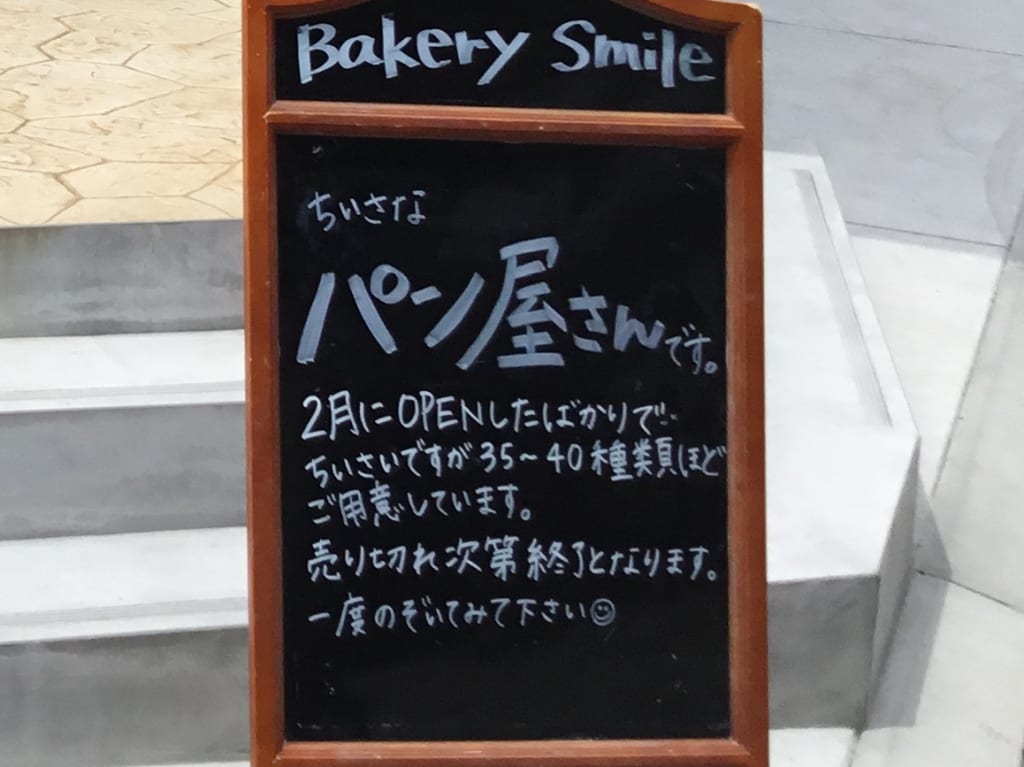 Bakery Smile
ちいさな
パン屋さんです。
2月にOPENしたばかりで‥
ちいさいですが35～40種類ほど
ご用意しています。
売り切れ次第終了となります。
一度のぞいてみて下さい☺